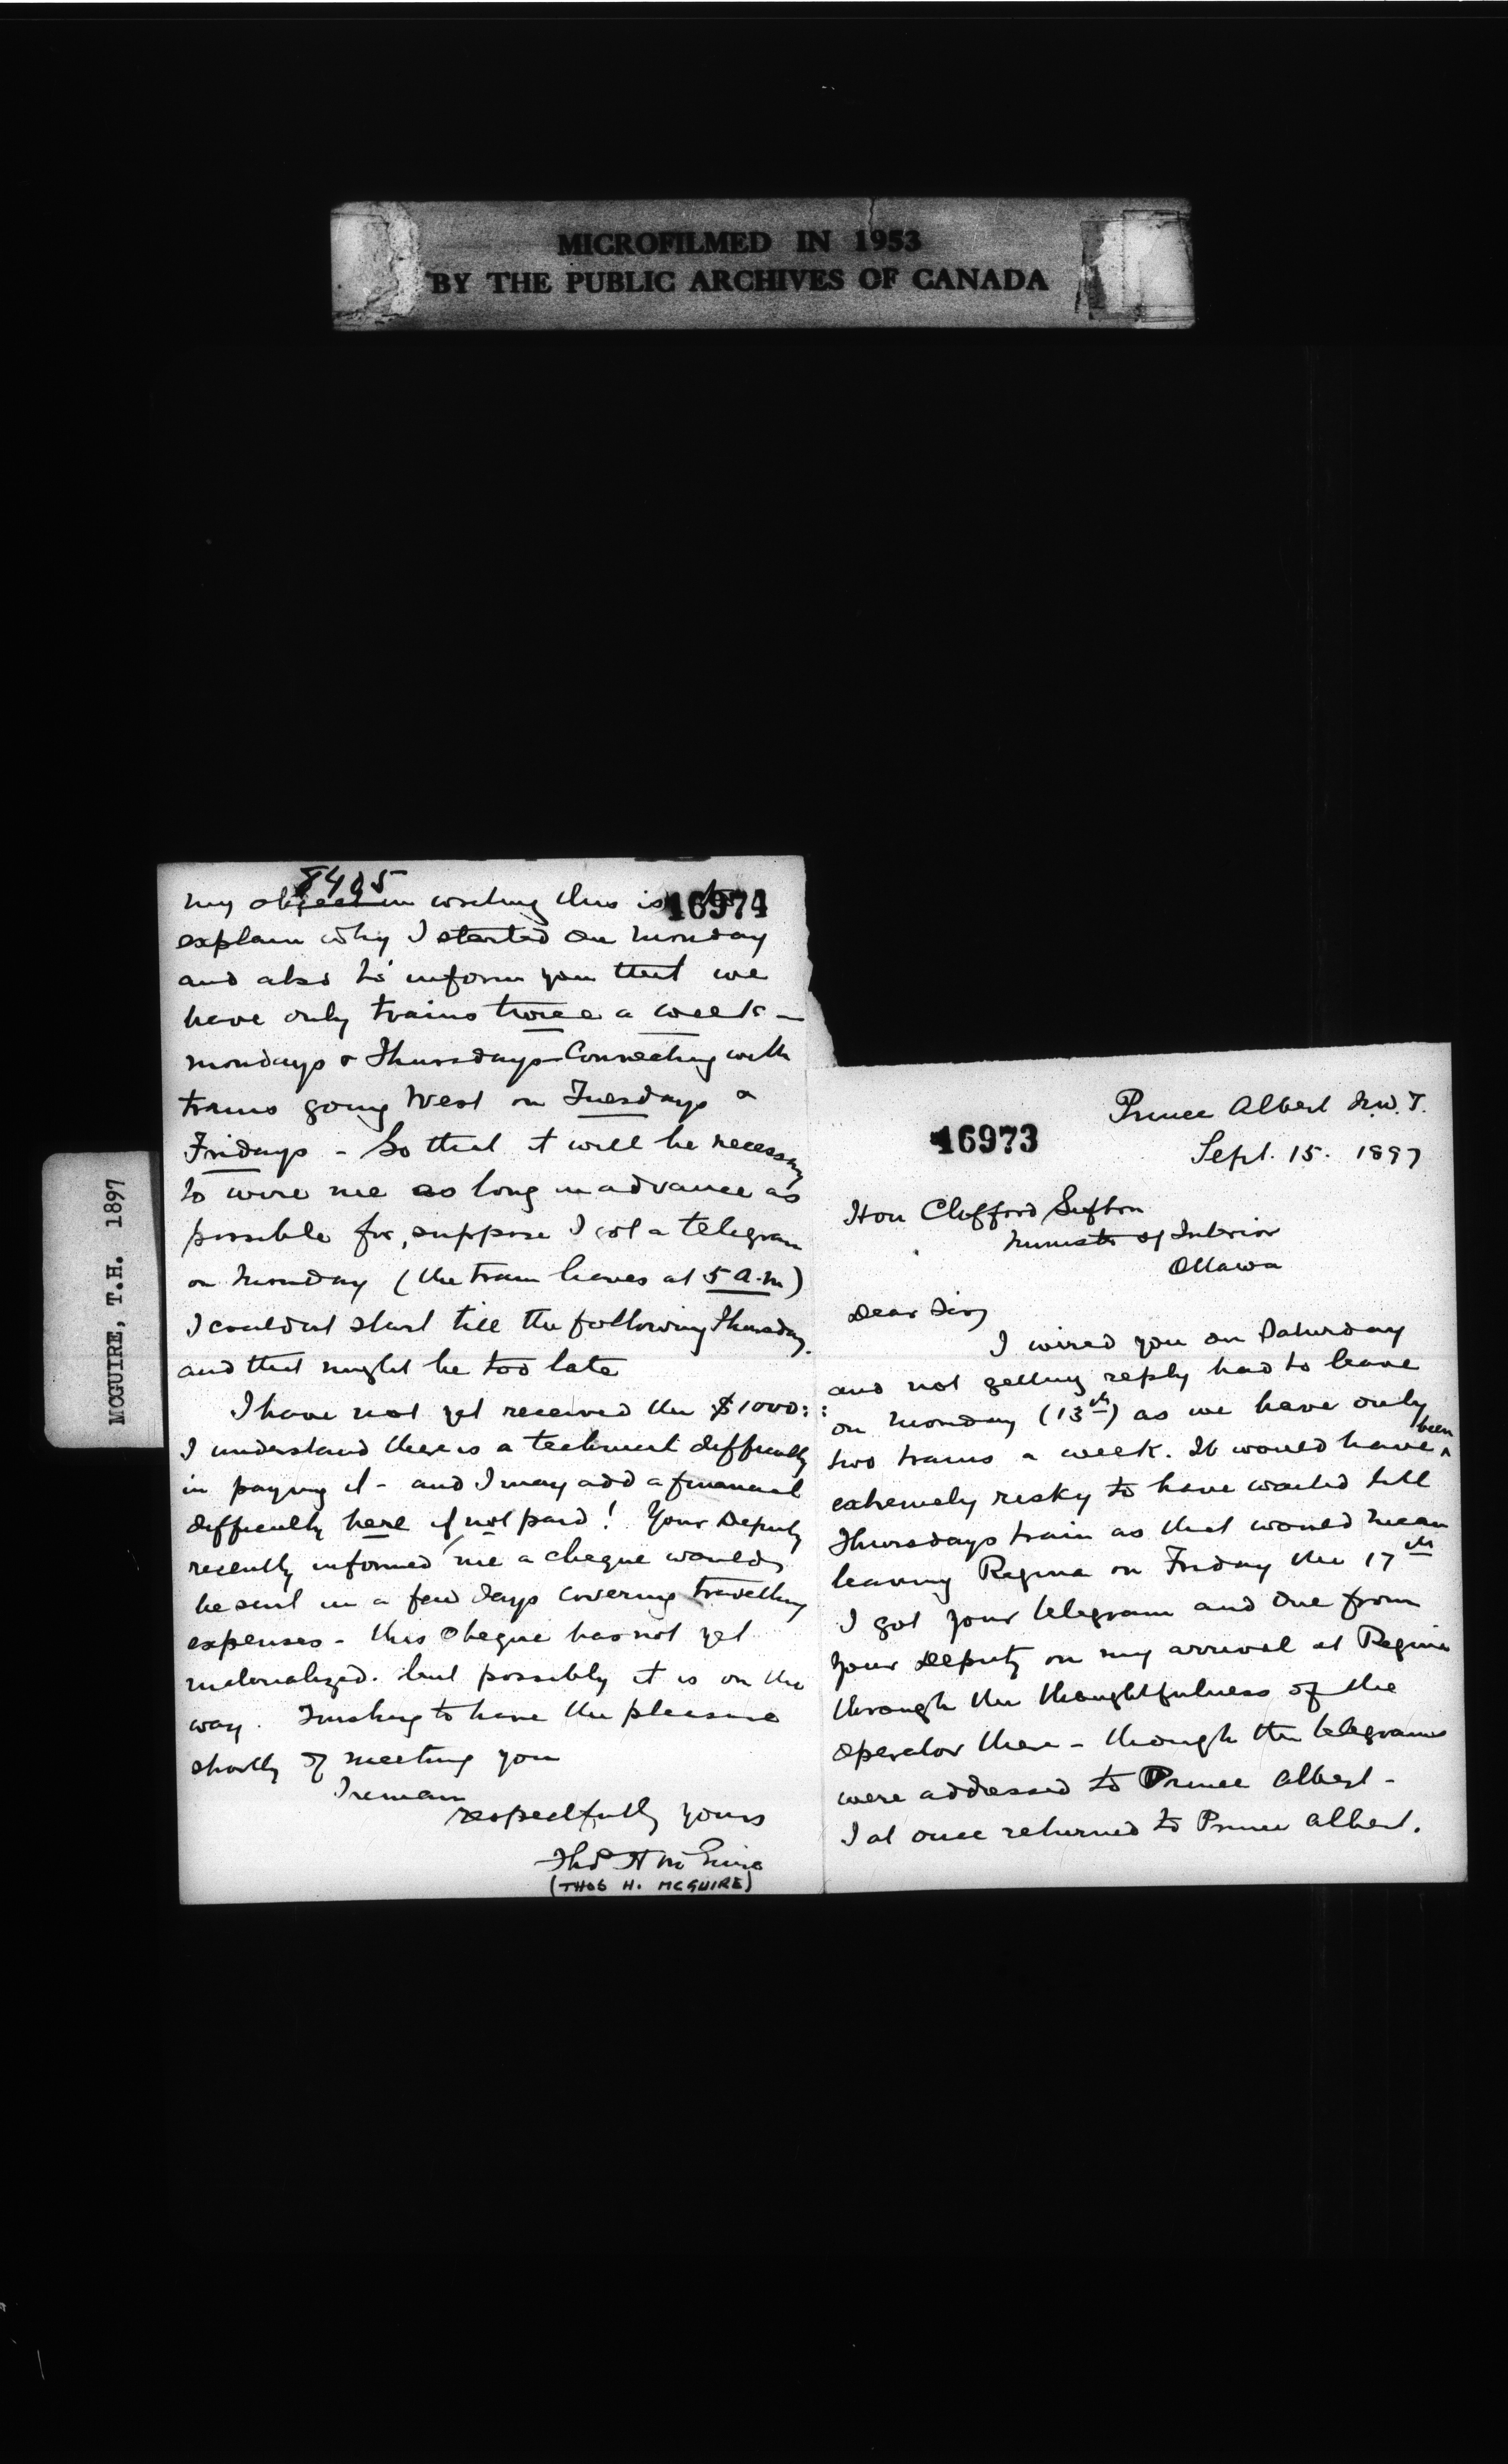 MICROFILMED IN 1953
BY THE PUBLIC ARCHIVES OF CANADA
MCGUIRE, T.H. 1897
16973
Prince Albert N.W.T.
Sept. 15. 1897
Hon Clifford Sifton
Minister of Interior
Ottawa
Dear Sir,
I wired you on Saturday
and not getting reply had to leave
on Monday (13th) as we have only
two trains a week. It would have been
extremely risky to have waited till
Thursdays train as that would mean
leaving Regina on Friday the 17th
I got your telegram and one from
your Deputy on my arrival at Regina
through the thoughtfulness of the
operator there - though the telegrams
were addressed to Prince Albert -
I at once returned to Prince Albert.
8405
16974
my object in writing this is to
explain why I started on Monday
and also to inform you that we
have only trains twice a week -
Mondays & Thursdays - Connecting with
trains going West on Tuesdays &
Fridays - So that it will be necessary
to wire me as long in advance as
possible for, suppose I got a telegram
on Monday (the train leaves at 5 a.m)
I couldnt start till the following Thursday.
and that might be too late
I have not yet received the $1000:
I understand there is a technical difficulty
in paying it - and I may add a financial
difficulty here if not paid! Your Deputy
recently informed me a cheque would
be sent in a few days covering travelling
expenses - this cheque has not yet
materialized. but possibly it is on the
way. Trusting to have the pleasure
shortly of meeting you
I remain
respectfully yours
Thos H McGuire
(THOS H. MCGUIRE)